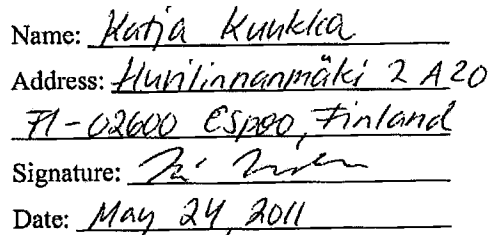 Name: Katja Kuukka
Address: Hurilinnanmäki 2 A 20
FI-02600 Espoo, Finland
Signature:
Date: May 24, 2011